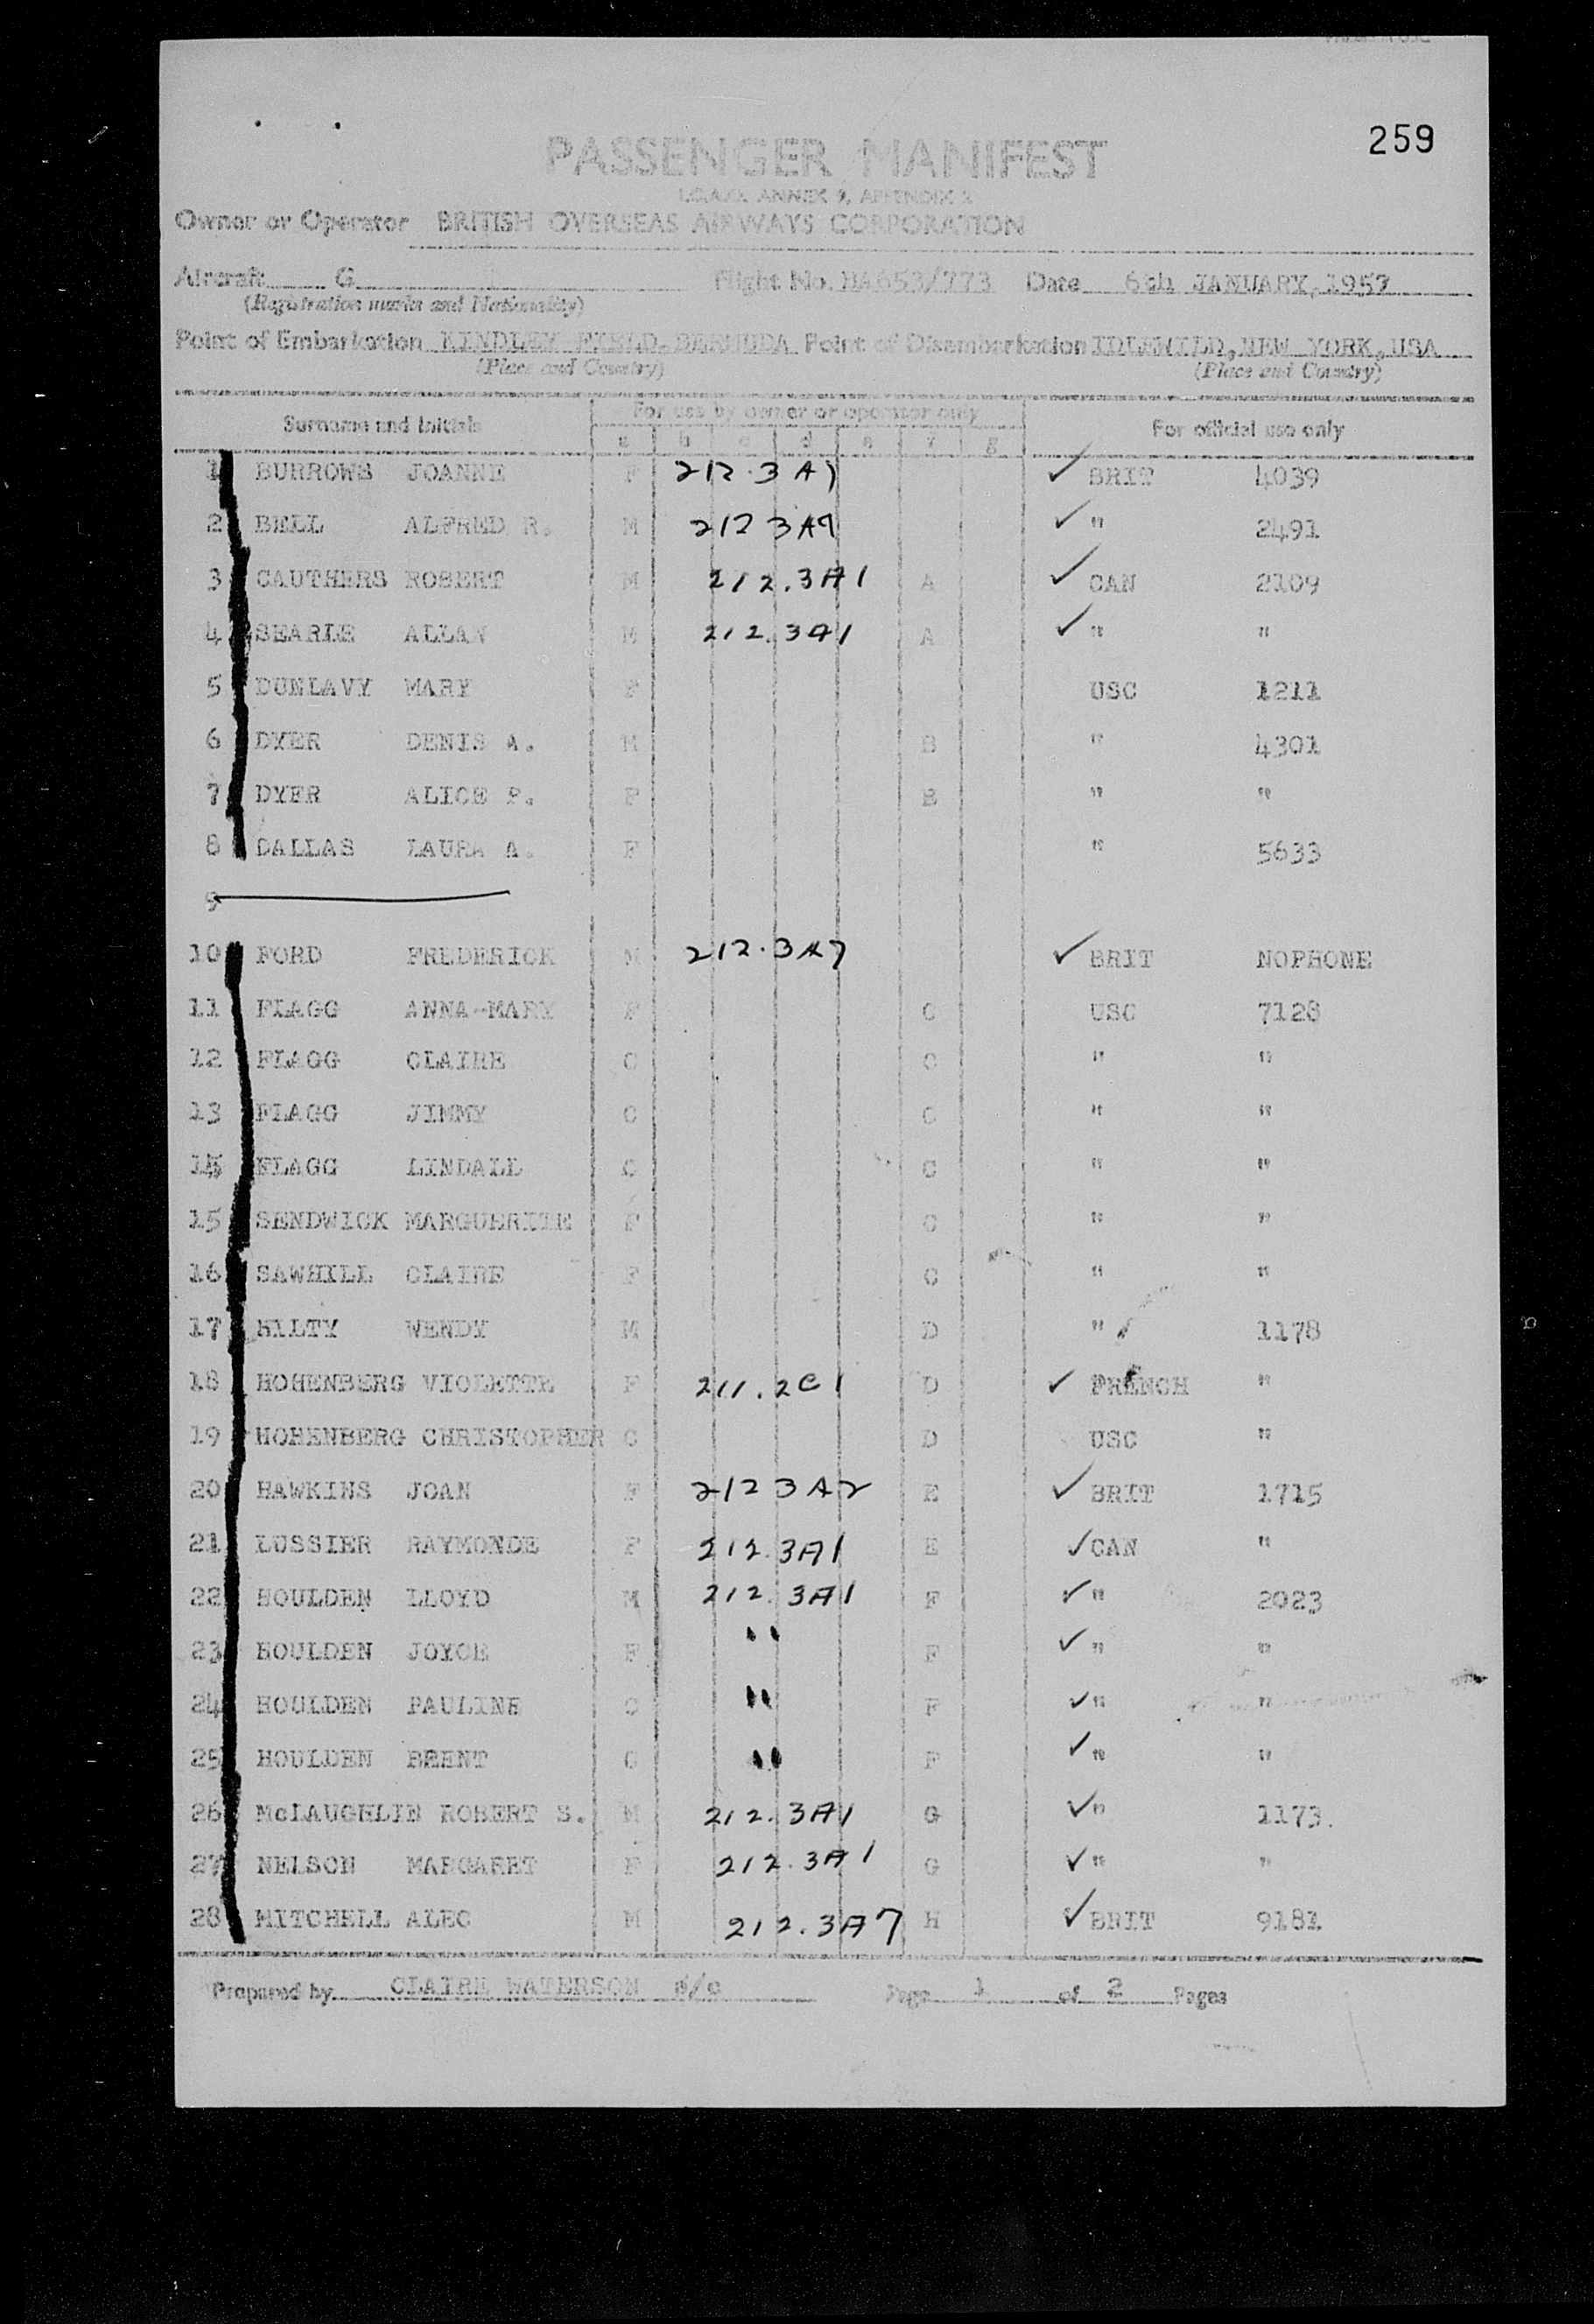 259
PASSENGER MANIFEST
I.C.A.O. ANNEX 9, APPENDIX 2
Owner or Operator BRITISH OVERSEAS AIRWAYS CORPORATION
Aircraft G Flight No. BA653/773 Date 6th JANUARY, 1957
(Registration marks and Nationality)
Point of Embarkation KINDLEY FIELD, BERMUDA Point of Disembarkation IDLEWILD, NEW YORK, USA
(Place and Country) (Place and Country)
Surname and Initials For use by owner or operator only For official use only
a b c d e f g
1 BURROWS JOANNE F 212.3A7 ✓ BRIT 4039
2 BELL ALFRED R. M 212 3A9 ✓ " 2491
3 CAUTHERS ROBERT M 212.3A1 A ✓ CAN 2109
4 SEARLE ALLAN M 212.3A1 A ✓ " "
5 DUNLAVY MARY F USC 1211
6 DYER DENIS A. M B " 4301
7 DYER ALICE P. F B " "
8 DALLAS LAURA A. F " 5633
9
10 FORD FREDERICK M 212.3A7 ✓ BRIT NOPHONE
11 FLAGG ANNA-MARY F C USC 7128
12 FLAGG CLAIRE C C " "
13 FLAGG JIMMY C C " "
FLAGG LINDALL C C " "
15 SENDWICK MARGUERITE F C " "
16 SAWHILL CLAIRE F C " "
17 HILTY WENDY M D " 1178
18 HOHENBERG VIOLETTE F 211.2C1 D ✓ FRENCH "
19 HOHENBERG CHRISTOPHER C D USC "
20 HAWKINS JOAN F 212 3A2 E ✓ BRIT 1715
21 LUSSIER RAYMONDE F 212.3A1 E ✓ CAN "
22 HOULDEN LLOYD M 212.3A1 F ✓ " 2023
23 HOULDEN JOYCE F " F ✓ " "
24 HOULDEN PAULINE C " F ✓ " "
25 HOULDEN BRENT C " F ✓ " "
26 McLAUGHLIN ROBERT S. M 212.3A1 G ✓ " 1173.
27 NELSON MARGARET F 212.3A1 G ✓ " "
28 MITCHELL ALEC M 212.3A7 H ✓ BRIT 9181
Prepared by CLAIRE WATERSON Page 1 of 2 Pages